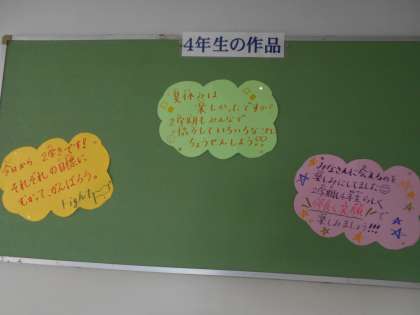 4年生の作品
夏休みは
楽しかったですか?
2学期もみんなで
協力していろいろなことに
ちょうせんしよう!!
今日から 2学き です!
それぞれの目標に
むかって、がんばろう。
Fight
みなさんに会えるのを
楽しみにしてました
2学期も4年生らしく
で
楽しみましょう!!!